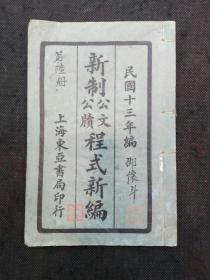 民國十三年編
懷斗
新制公文公牘程式新編
第陸册
上海東亞書局印行